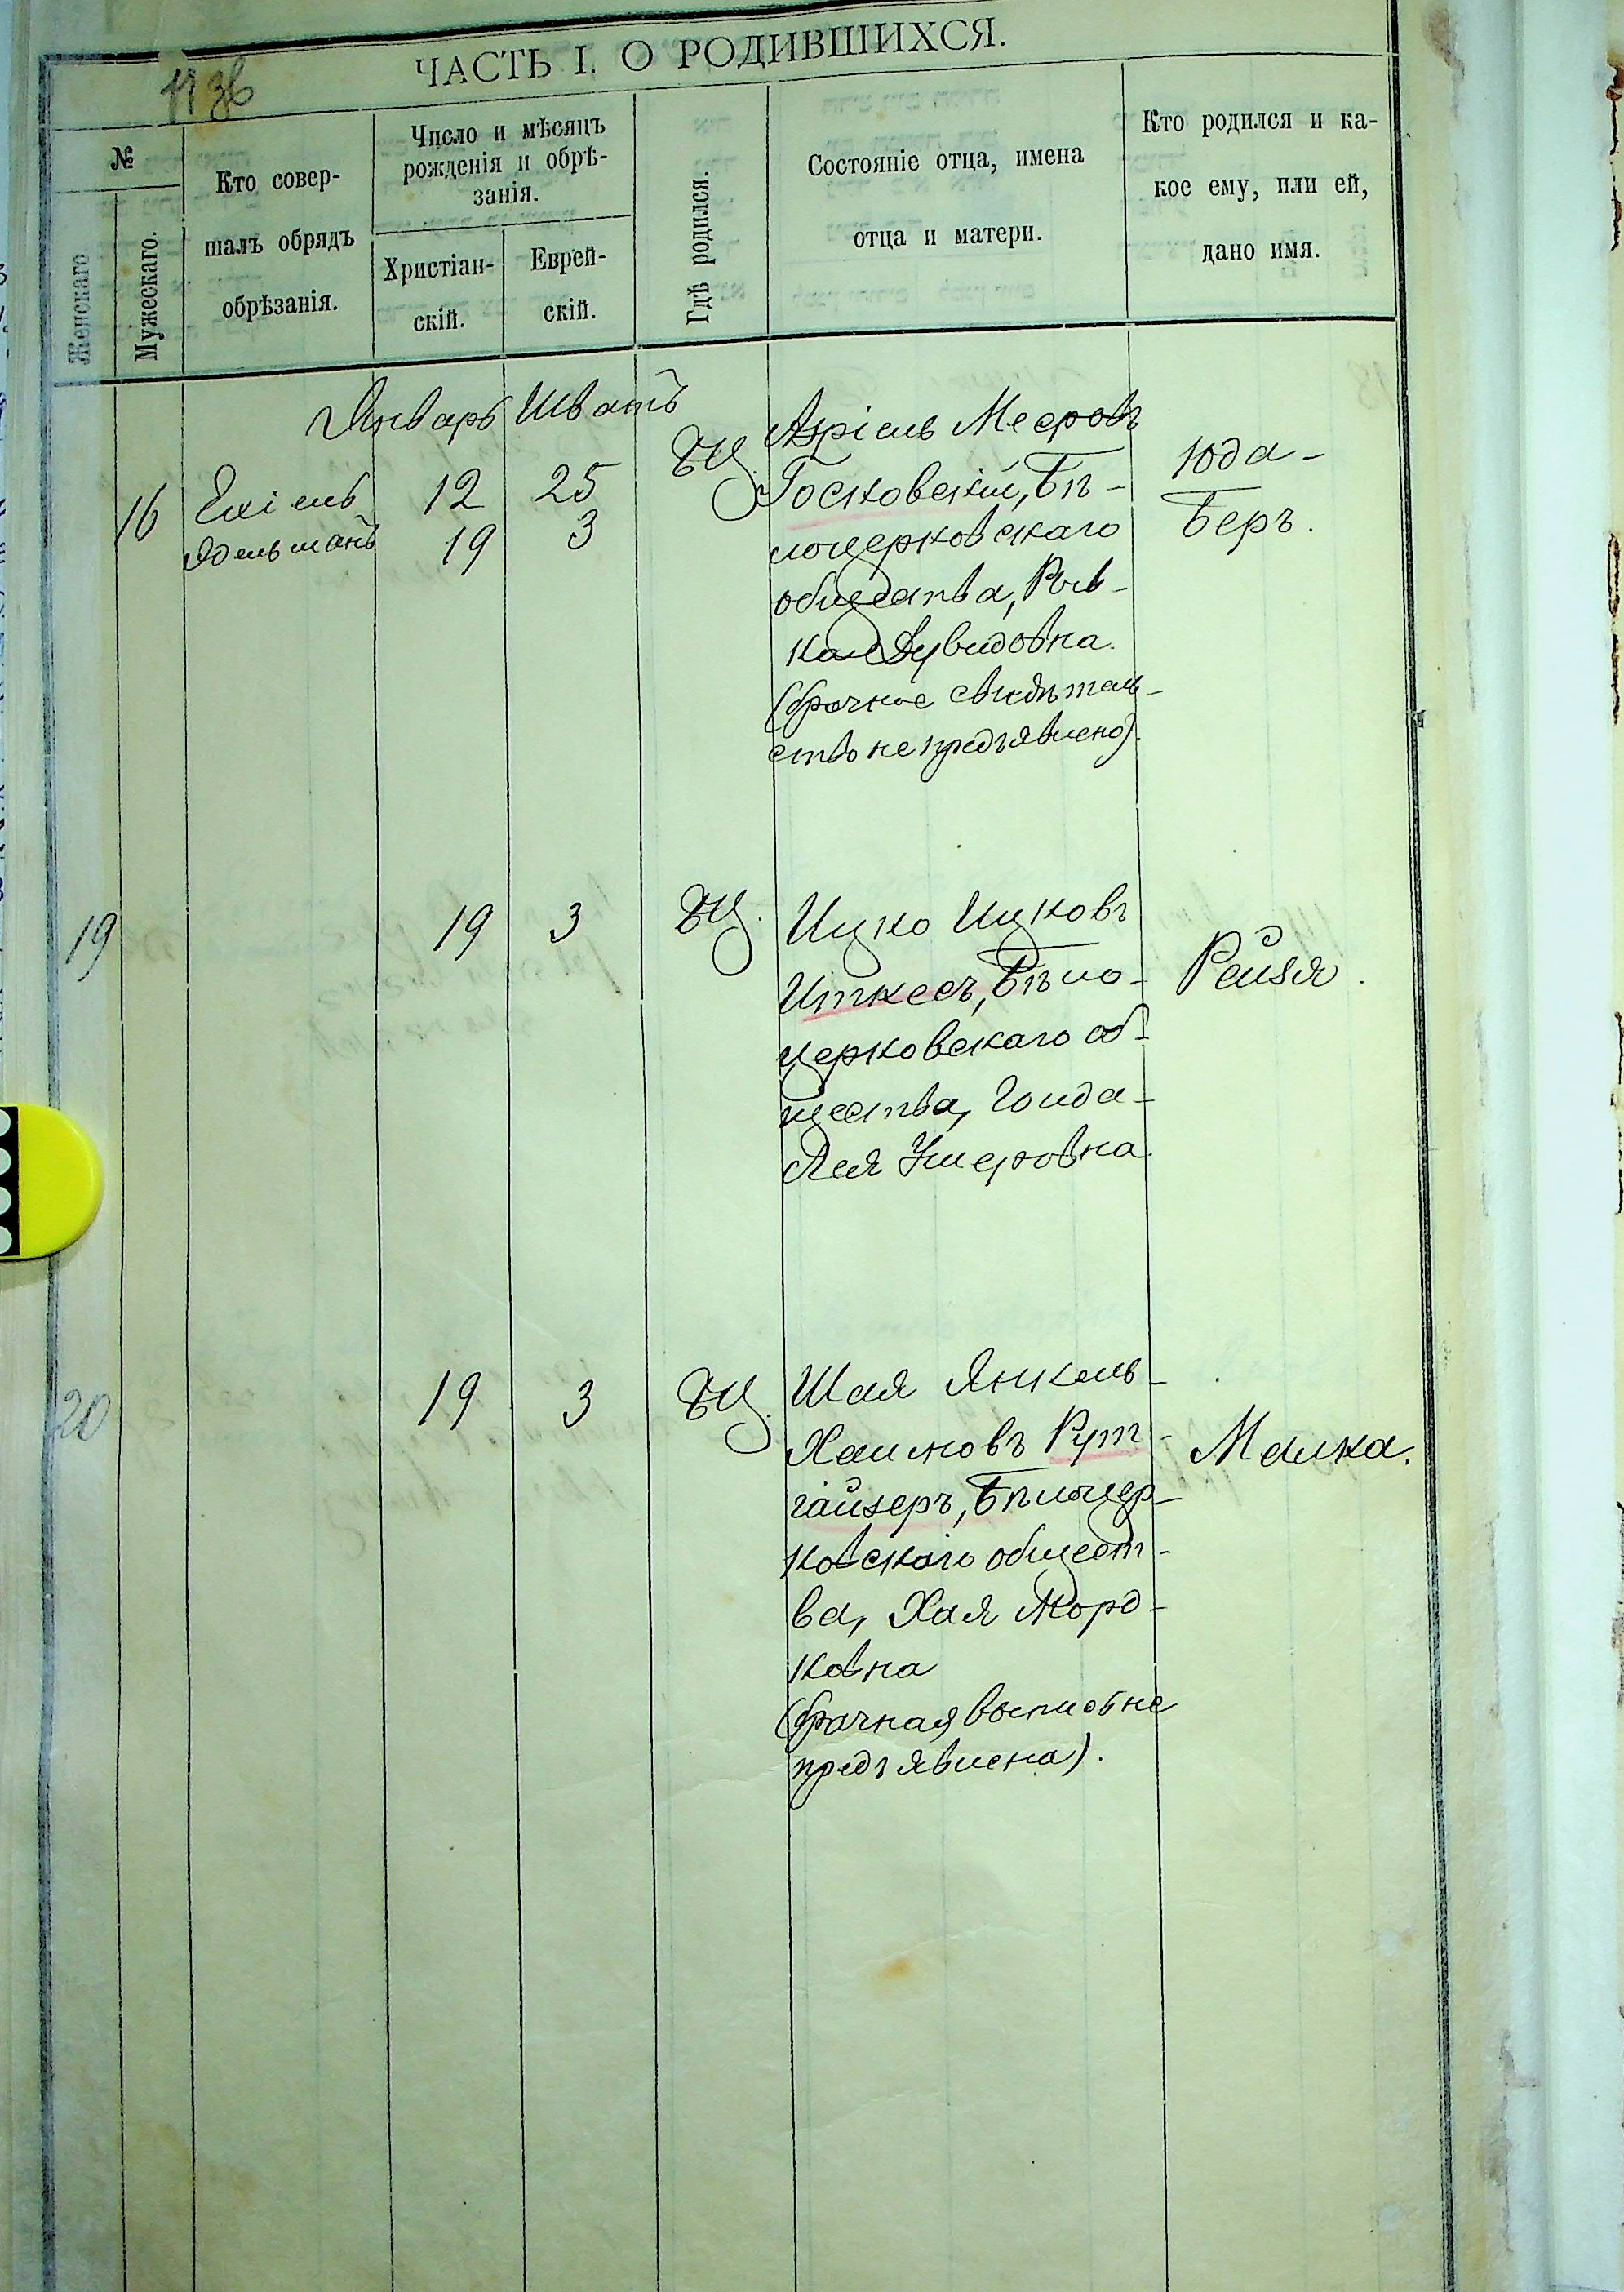 ЧАСТЬ I. О РОДИВШИХСЯ.
№
Женскаго
Мужескаго.
Кто совер-
шалъ обрядъ
обрѣзанія.
Число и мѣсяцъ
рожденія и обрѣ-
занія.
Христіан-
скій.
Еврей-
скій.
Гдѣ родился.
Состояніе отца, имена
отца и матери.
Кто родился и ка-
кое ему, или ей,
дано имя.
Январь Шватъ
16 Ехіель 12 25 БЦ.
Эдельманъ 19 3
Азріель Мееровъ
Госковскій, Бѣ-
лоцерковскаго
общества, Рив-
кая Дувидовна.
(брачное свидѣтель-
ство не предъявлено).
Юда-
Беръ.
19 19 3 БЦ.
Ицко Ицковъ
Иткесъ, Бѣло-
церковскаго об-
щества, Голда-
Лея Ушеровна.
Рейзя.
20 19 3 БЦ.
Шая Янкель-
Хаимовъ Рут-
гайзеръ, Бѣлоцер-
ковскаго общест-
ва, Хая Морд-
ковна
(брачная выпись не
предъявлена).
Малка.